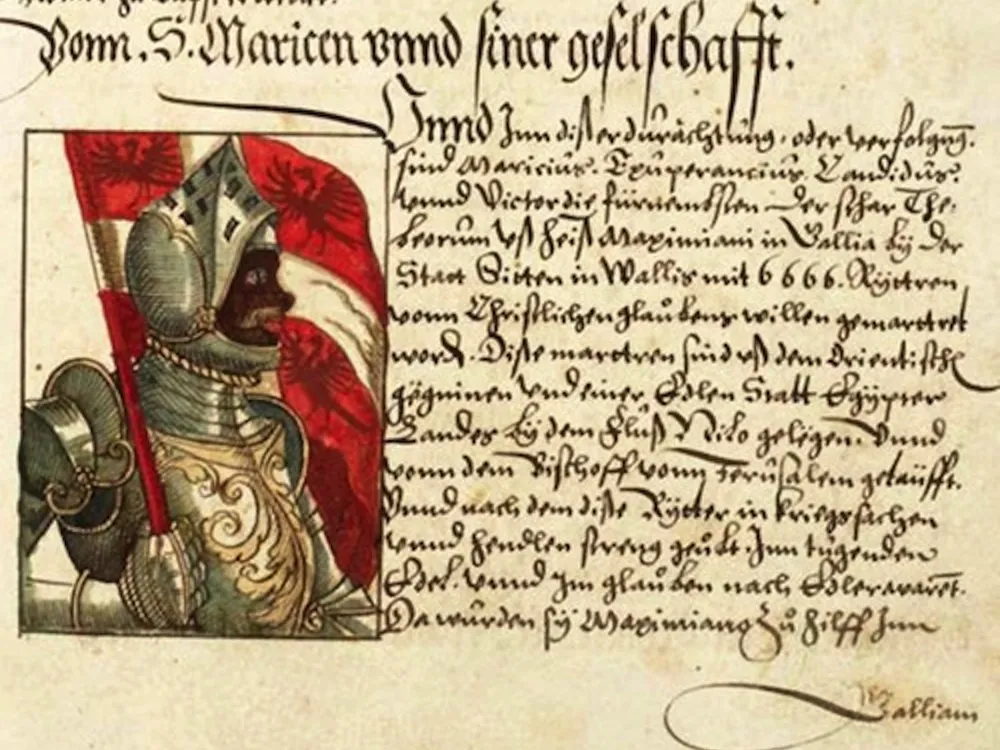 Vonn. S. Maricen vnnd siner geselschafft.
Vnnd Jnn disser durächtung, oder verfolgūg.
sind Maricius. Exuperancius. Candidus.
vnnd Victor die fürnembsten der schar The-
beorum vß heiß Maximiani in Gallia by der
Statt Sitten in Wallis mit 6666. Rÿttren
vonn Christlichen glaubens willen gemarttret
word. Dise marttren sind vß dem Orientisch
gegninen vnd einer Edlen Statt Egÿpter
Landes bÿ dem Fluß Nilo gelegen. Vnnd
vonn dem Bischoff vonn Jerusalem getäufft.
Vnnd nach dem dise Rÿtter in kriegssachen
vnnd hendlen streng geübt. Jnn tugenden
Edel. vnnd jm glauben nach Edler
Da wurden sÿ Maximiano zů hilff Jnn
Galliam